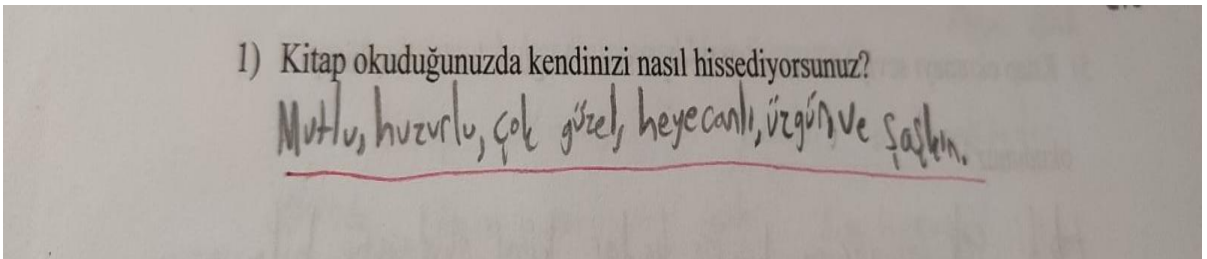 1) Kitap okuduğunuzda kendinizi nasıl hissediyorsunuz?
Mutlu, huzurlu, çok güzel, heyecanlı, üzgün ve şaşkın.